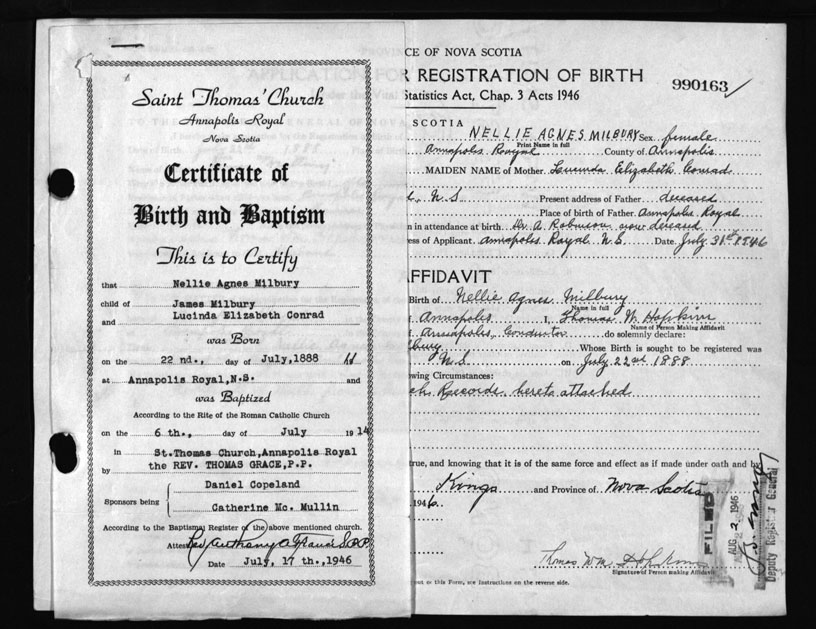 Saint Thomas' Church
Annapolis Royal
Nova Scotia
Certificate of
Birth and Baptism
This is to Certify
that Nellie Agnes Milbury
child of James Milbury
and Lucinda Elizabeth Conrad
was Born
on the 22 nd., day of July,1888
at Annapolis Royal,N.S. and
was Baptized
According to the Rite of the Roman Catholic Church
on the 6 th., day of July 1914
in St.Thomas Church,Annapolis Royal
by the REV. THOMAS GRACE,P.P.
Sponsors being Daniel Copeland
Catherine Mc. Mullin
According to the Baptismal Register of the above mentioned church.
Attest Rev Anthony
Date July, 17 th.,1946
CE OF NOVA SCOTIA
APPLICATION FOR REGISTRATION OF BIRTH
990163
Statistics Act, Chap. 3 Acts 1946
SCOTIA
NELLIE AGNES MILBURY Sex female
Print Name in full
Annapolis Royal County of Annapolis
MAIDEN NAME of Mother Lucinda Elizabeth Conrad
N.S Present address of Father deceased
Place of birth of Father Annapolis Royal
n in attendance at birth Dr A. Robinson now deceased
ess of Applicant Annapolis Royal N.S. Date July 31st 1946
AFFIDAVIT
Birth of Nellie Agnes Milbury
Name in full
Annapolis I, Thomas W Hopkins
Name of Person Making Affidavit
Annapolis, Conductor do solemnly declare:
lbury Whose Birth is sought to be registered was
N.S on July 22nd 1888
wing Circumstances:
ch Records hereto attached
true, and knowing that it is of the same force and effect as if made under oath and by
Kings and Province of Nova Scotia
1946.
FILED
AUG 2 1946
Deputy Registrar General
Thomas Wm Hopkins
Signature of Person making Affidavit
out to this Form, see instructions on the reverse side.